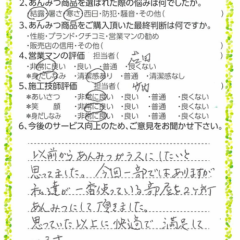 2.あんみつ商品を選ばれた際の悩みは何でしたか。
結露・暑さ・寒さ・西日・防犯・騒音・その他(　　)
3.あんみつ商品をご購入頂いた最終判断は何ですか。
・性能・ブランド・クチコミ・営業マンの勧め
・販売店の信用・その他(　　)
4.営業マンの評価　担当者(　　)
・非常に良い・良い・普通・良くない
*身だしなみ　清潔感あり・普通・清潔感なし
5.施工技師評価　担当者(　　)
*あいさつ　・非常に良い・良い・普通・良くない
*笑　顔　・非常に良い・良い・普通・良くない
*身だしなみ・非常に良い・良い・普通・良くない
6.今後のサービス向上のため、ご意見をお聞かせ下さい。
以前からあんみつガラスにしたいと
思ってました。今回一部ではありますが
私達が一番使っている部屋を2ヶ所
あんみつにして頂きました。
思っていた以上に快適で満足して
います。